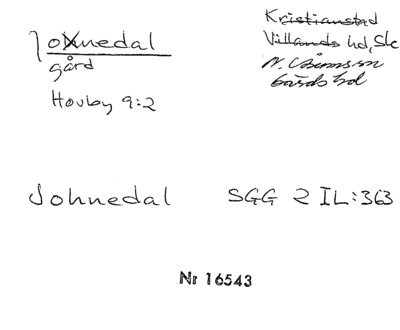 Johnedal
gård
Hovby 9:2
Kristianstad
Villands hd, Sk
N. Åsum sn
Gärds hd
Johnedal SGG 2 IL:363
Nr 16543